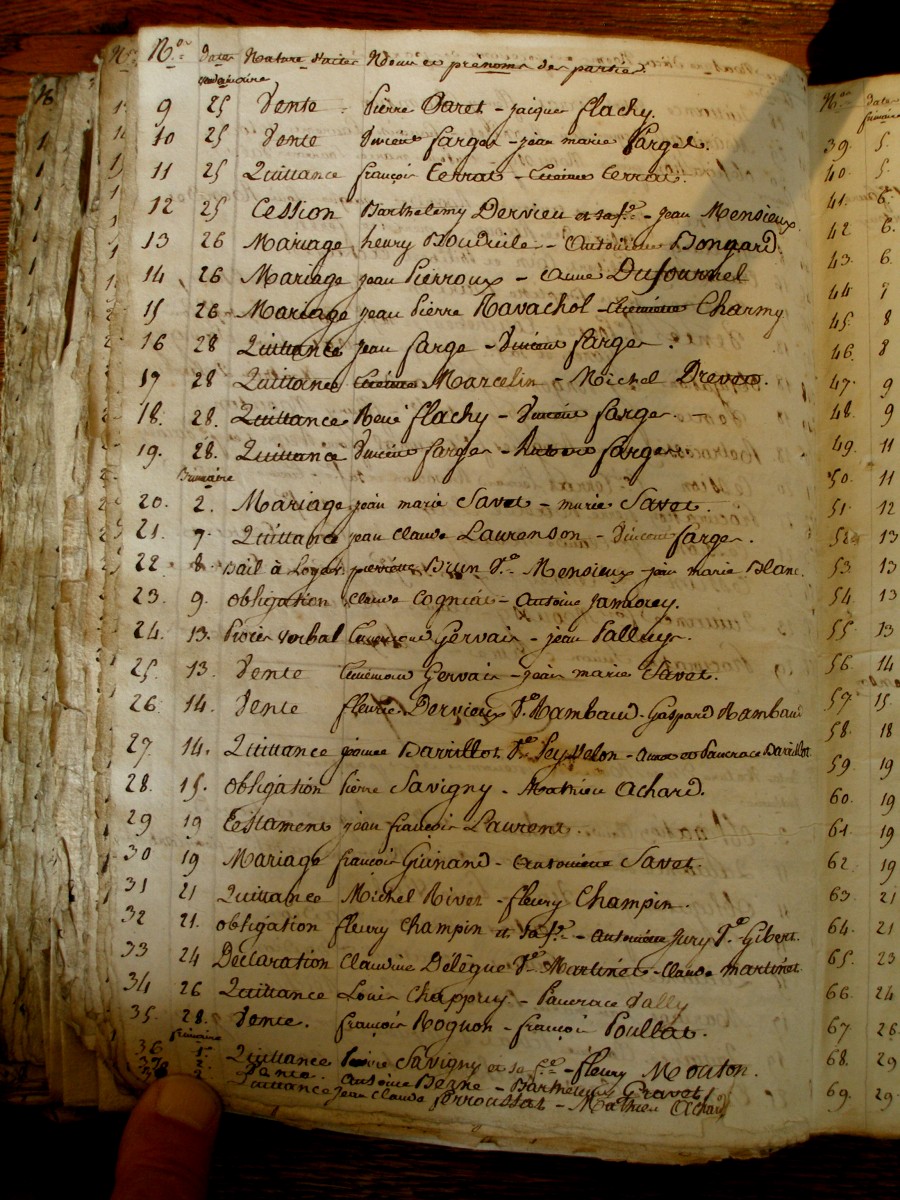 N.os Dates Nature d'actes Noms et prénoms des parties.
vendémiaire
9 25 Vente - Pierre Daret - jacques flachy.
10 25 Vente Vincent farges - jean marie farges.
11 25 Quittance françois Terrat - Terrat.
12 25 Cession Barthelemy Dervieu et sa f.e - jean Mensieux.
13 26 Mariage henry - Bongard.
14 26 Mariage jean Pierroux - anne Dufournel
15 26 Mariage jean Pierre Ravachol - Charmy
16 28 Quittance jean farge - Vincent farges.
17 28 Quittance Marcelin - Michel Drevon.
18. 28. Quittance René flachy - Vincent farge. -
19. 28. Quittance Vincent farges - farges.
Brumaire
20. 2. Mariage jean marie Savet - marie Savet.
21. 7. Quittance jean Claude Laurenson - Vincent farges.
22. 8. Bail à Loyer pierrette Brun V.e Mensieux jean marie Blanc.
23. 9. obligation Claude Cogniat - Antoine
24. 13. Procès verbal Gervais - jean Palluy.
25. 13. Vente Gervais - jean marie Savet.
26 14. Vente fleurie Dervieux V.e Rambaud - Gaspard Rambau
27. 14. Quittance Barrillot V.e Peyvelon - et Pancrace Barillot
28. 15. obligation Pierre Savigny - Mathieu Achard.
29 19 Testament jean françois Laurent.
30 19 Mariage françois Guinand - antoinette Savet.
31 21 Quittance Michel Rivet - fleury Champin.
32 21. obligation fleury Champin et sa f.e - antoinette Jury V.e Gibert.
33 24 Déclaration Claudine Délègue V.e Martinet - Claude martinet
34 26 Quittance Louis Chappuy - Pancrace Vally
35. 28. Vente. françois Rognon - françois Poullat.
frimaire
36 1.er Quittance Pierre Savigny et sa f.e - fleury Mouton.
37 2. Vente. antoine Bezne - Barthelemy Gravet
38 2 Quittance jean Claude ferroussat - Mathieu Achard
N.os Dates
frimaire
39. 5.
40. 5.
41. 6.
42 6.
43. 6.
44 7
45. 8
46. 8
47. 9
48. 9
49. 11
50. 11
51. 12
52 13
53 13
54. 13
55. 13
56. 14
57. 15
58. 18
59. 19
60. 19
61. 19
62. 19
63. 21
64. 21
65. 23
66. 24
67 26
68. 29
69. 29